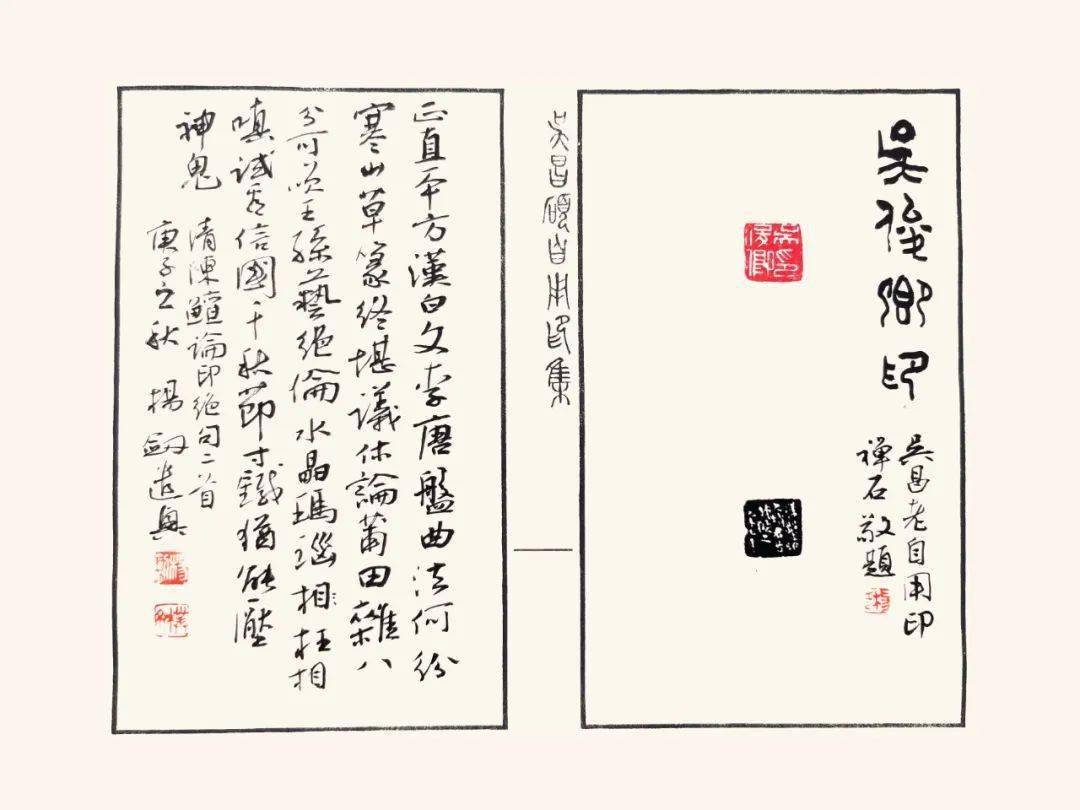 吳俊卿印
吳昌老自用印
禅石敬題
吳俊卿印
吳昌碩自用印集
正直平方漢白文李唐盤曲法何紛
寒山草篆終堪議休論莆田雜八
分可笑王孫藝絕倫水晶瑪瑙相枉相
嗔試看信國千秋節寸鐵猶能壓
神鬼
清陳鱣論印絕句二首
庚子之秋 楊劍遣興